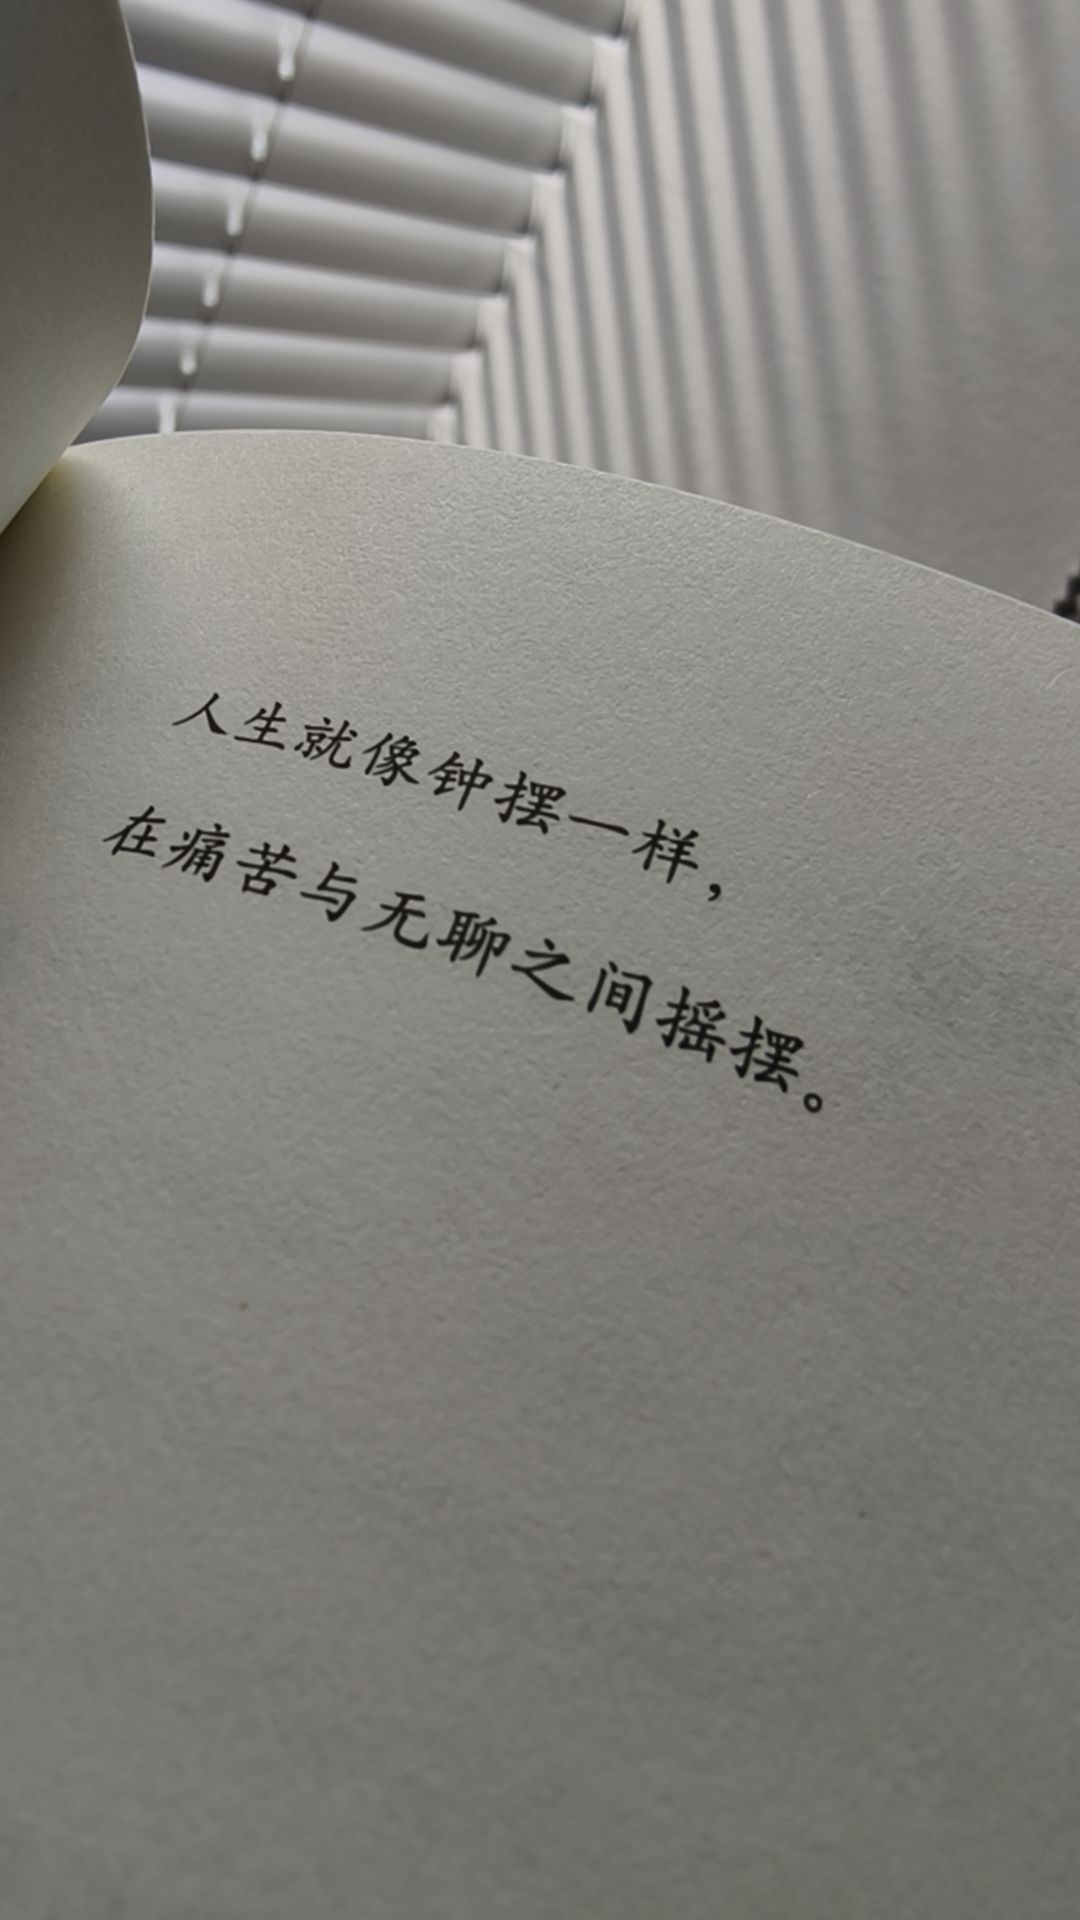 人生就像钟摆一样，
在痛苦与无聊之间摇摆。